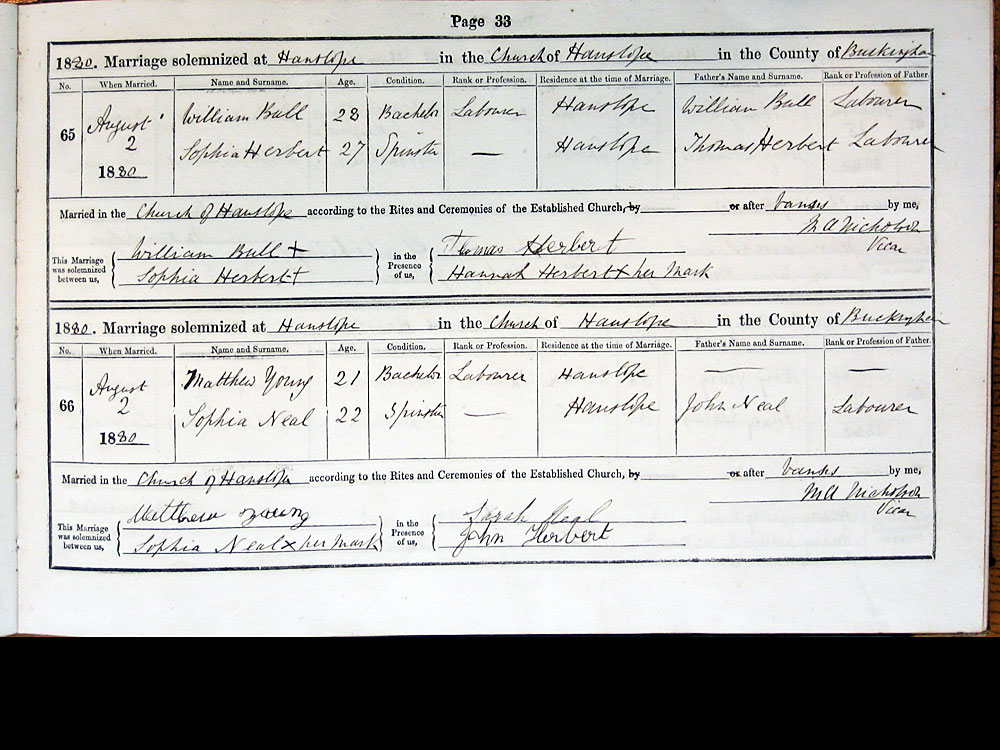 Page 33
1880. Marriage solemnized at Hanslope in the Church of Hanslope in the County of Buckingham
No. When Married. Name and Surname. Age. Condition. Rank or Profession. Residence at the time of Marriage. Father's Name and Surname. Rank or Profession of Father.
65 August 2 1880 William Bull 28 Bachelor Labourer Hanslope William Bull Labourer
Sophia Herbert 27 Spinster — Hanslope Thomas Herbert Labourer
Married in the Church of Hanslope according to the Rites and Ceremonies of the Established Church, by or after banns by me,
M A Nicholson
Vicar
This Marriage was solemnized between us, William Bull + in the Presence of us, Thomas Herbert
Sophia Herbert + Hannah Herbert + her Mark
1880. Marriage solemnized at Hanslope in the Church of Hanslope in the County of Buckingham
No. When Married. Name and Surname. Age. Condition. Rank or Profession. Residence at the time of Marriage. Father's Name and Surname. Rank or Profession of Father.
66 August 2 1880 Matthew Young 21 Bachelor Labourer Hanslope — —
Sophia Neal 22 Spinster — Hanslope John Neal Labourer
Married in the Church of Hanslope according to the Rites and Ceremonies of the Established Church, by or after banns by me,
M A Nicholson
Vicar
This Marriage was solemnized between us, Matthew Young in the Presence of us, Sarah Neal
Sophia Neal x her Mark John Herbert